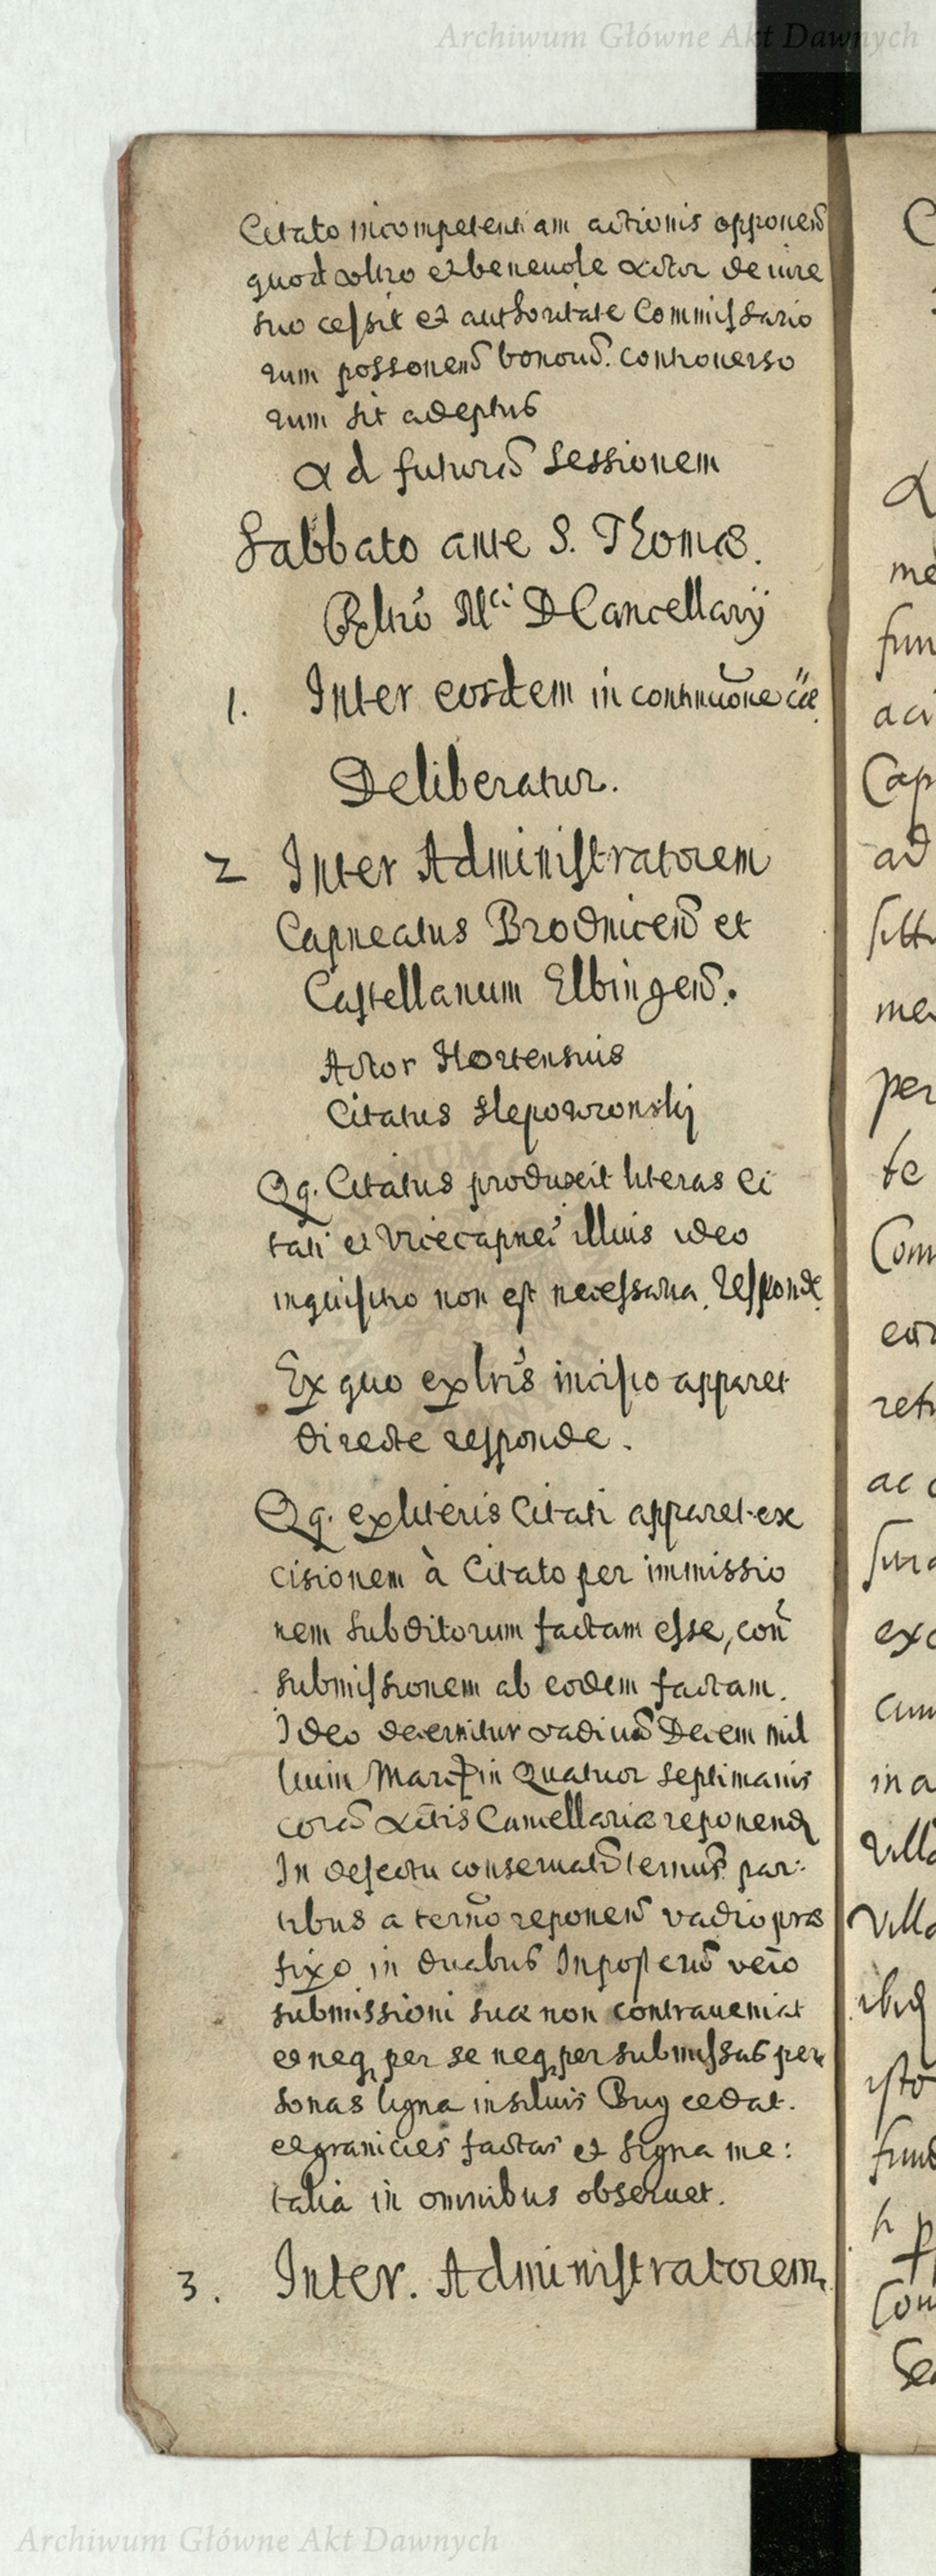 Archiwum Główne Akt Dawnych
Citato incompetentiam actionis opponen̄
quod ultro et beneuole Actor de iure
suo cessit et authoritate Commissario
rum possonen̄ bonorū. controuerso
rum sit adeptus
Ad futurā sessionem
Sabbato ante S. Thomæ.
Rel Mci D Cancellarij
1. Inter eosdem in continuōne cäe
Deliberatur.
2 Inter Administratorem
Capneatus Brodnicen̄ et
Castellanum Elbingen̄.
Actor Hortensius
Citatus Slepowronskj
Qq. Citatus produxit literas Ci
tati et Vicecapnei illius ideo
inquisitio non est necessaria. Responde.
Ex quo ex lris incisio apparet
directe responde.
Qq. ex literis Citati apparet ex
cisionem à Citato per immissio
nem subditorum factam esse, con̄
submissionem ab eodem factam.
Ideo decernitur vadiū Decem mil
lium in Quatuor septimanis
corā Actis Cancellariæ reponend
In defectu par:
tibus a termo reponen̄ vadio præ
fixo in duabus Inposterū vero
submissioni suæ non contraueniat
et neq per se neq per submissas per
sonas ligna in siluis Bug cedat.
et granicies factas et signa me:
talia in omnibus obseruet.
3. Inter. Administratorem
Archiwum Główne Akt Dawnych